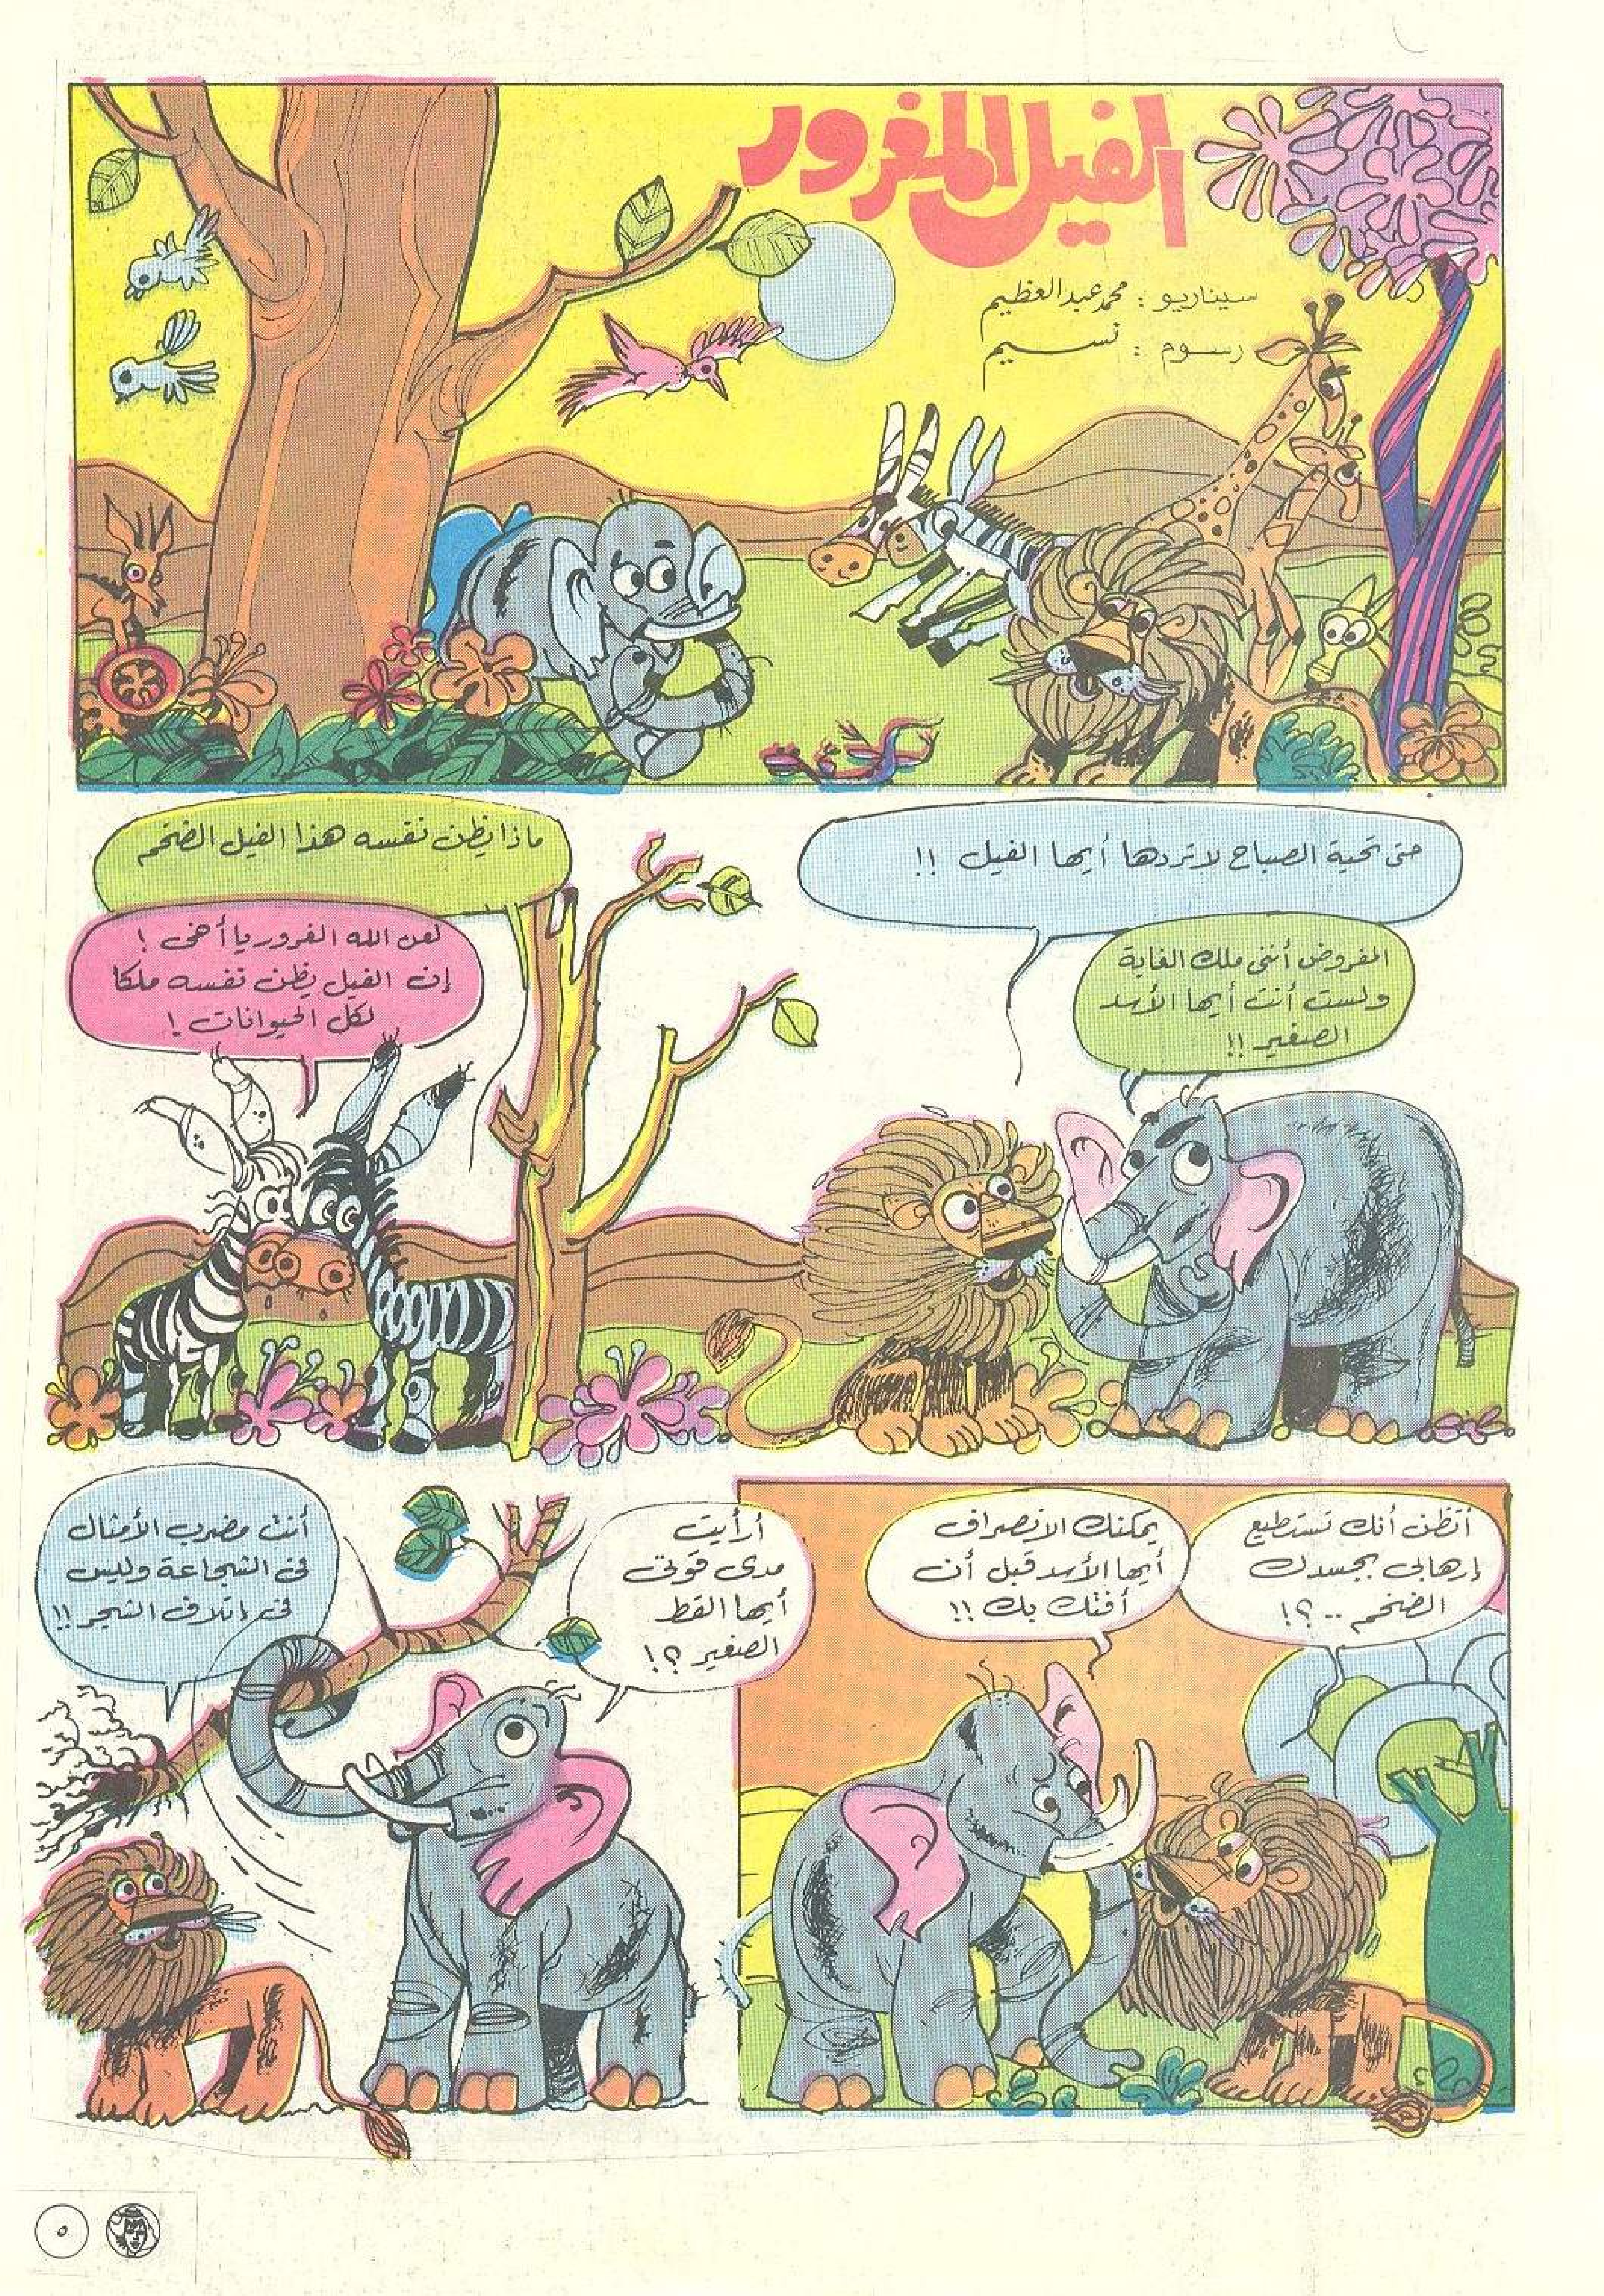 الفيل المغرور
سيناريو : محمد عبد العظيم
رسوم : نسيم
حتى تحية الصباح لا تردها أيها الفيل !!
المفروض أننى ملك الغابة
ولست أنت أيها الأسد
الصغير !!
ماذا يظن نفسه هذا الفيل الضخم
لعن الله الغرور يا أخى !
إن الفيل يظن نفسه ملكا
لكل الحيوانات !
أتظن أنك تستطيع
إرهابى بجسدك
الضخم .. ؟!
يمكنك الانصراف
أيها الأسد قبل أن
أفتك بك !!
أرأيت
مدى قوتى
أيها القط
الصغير ؟!
أنت مضرب الأمثال
فى الشجاعة وليس
فى إتلاف الشجر !!
٥